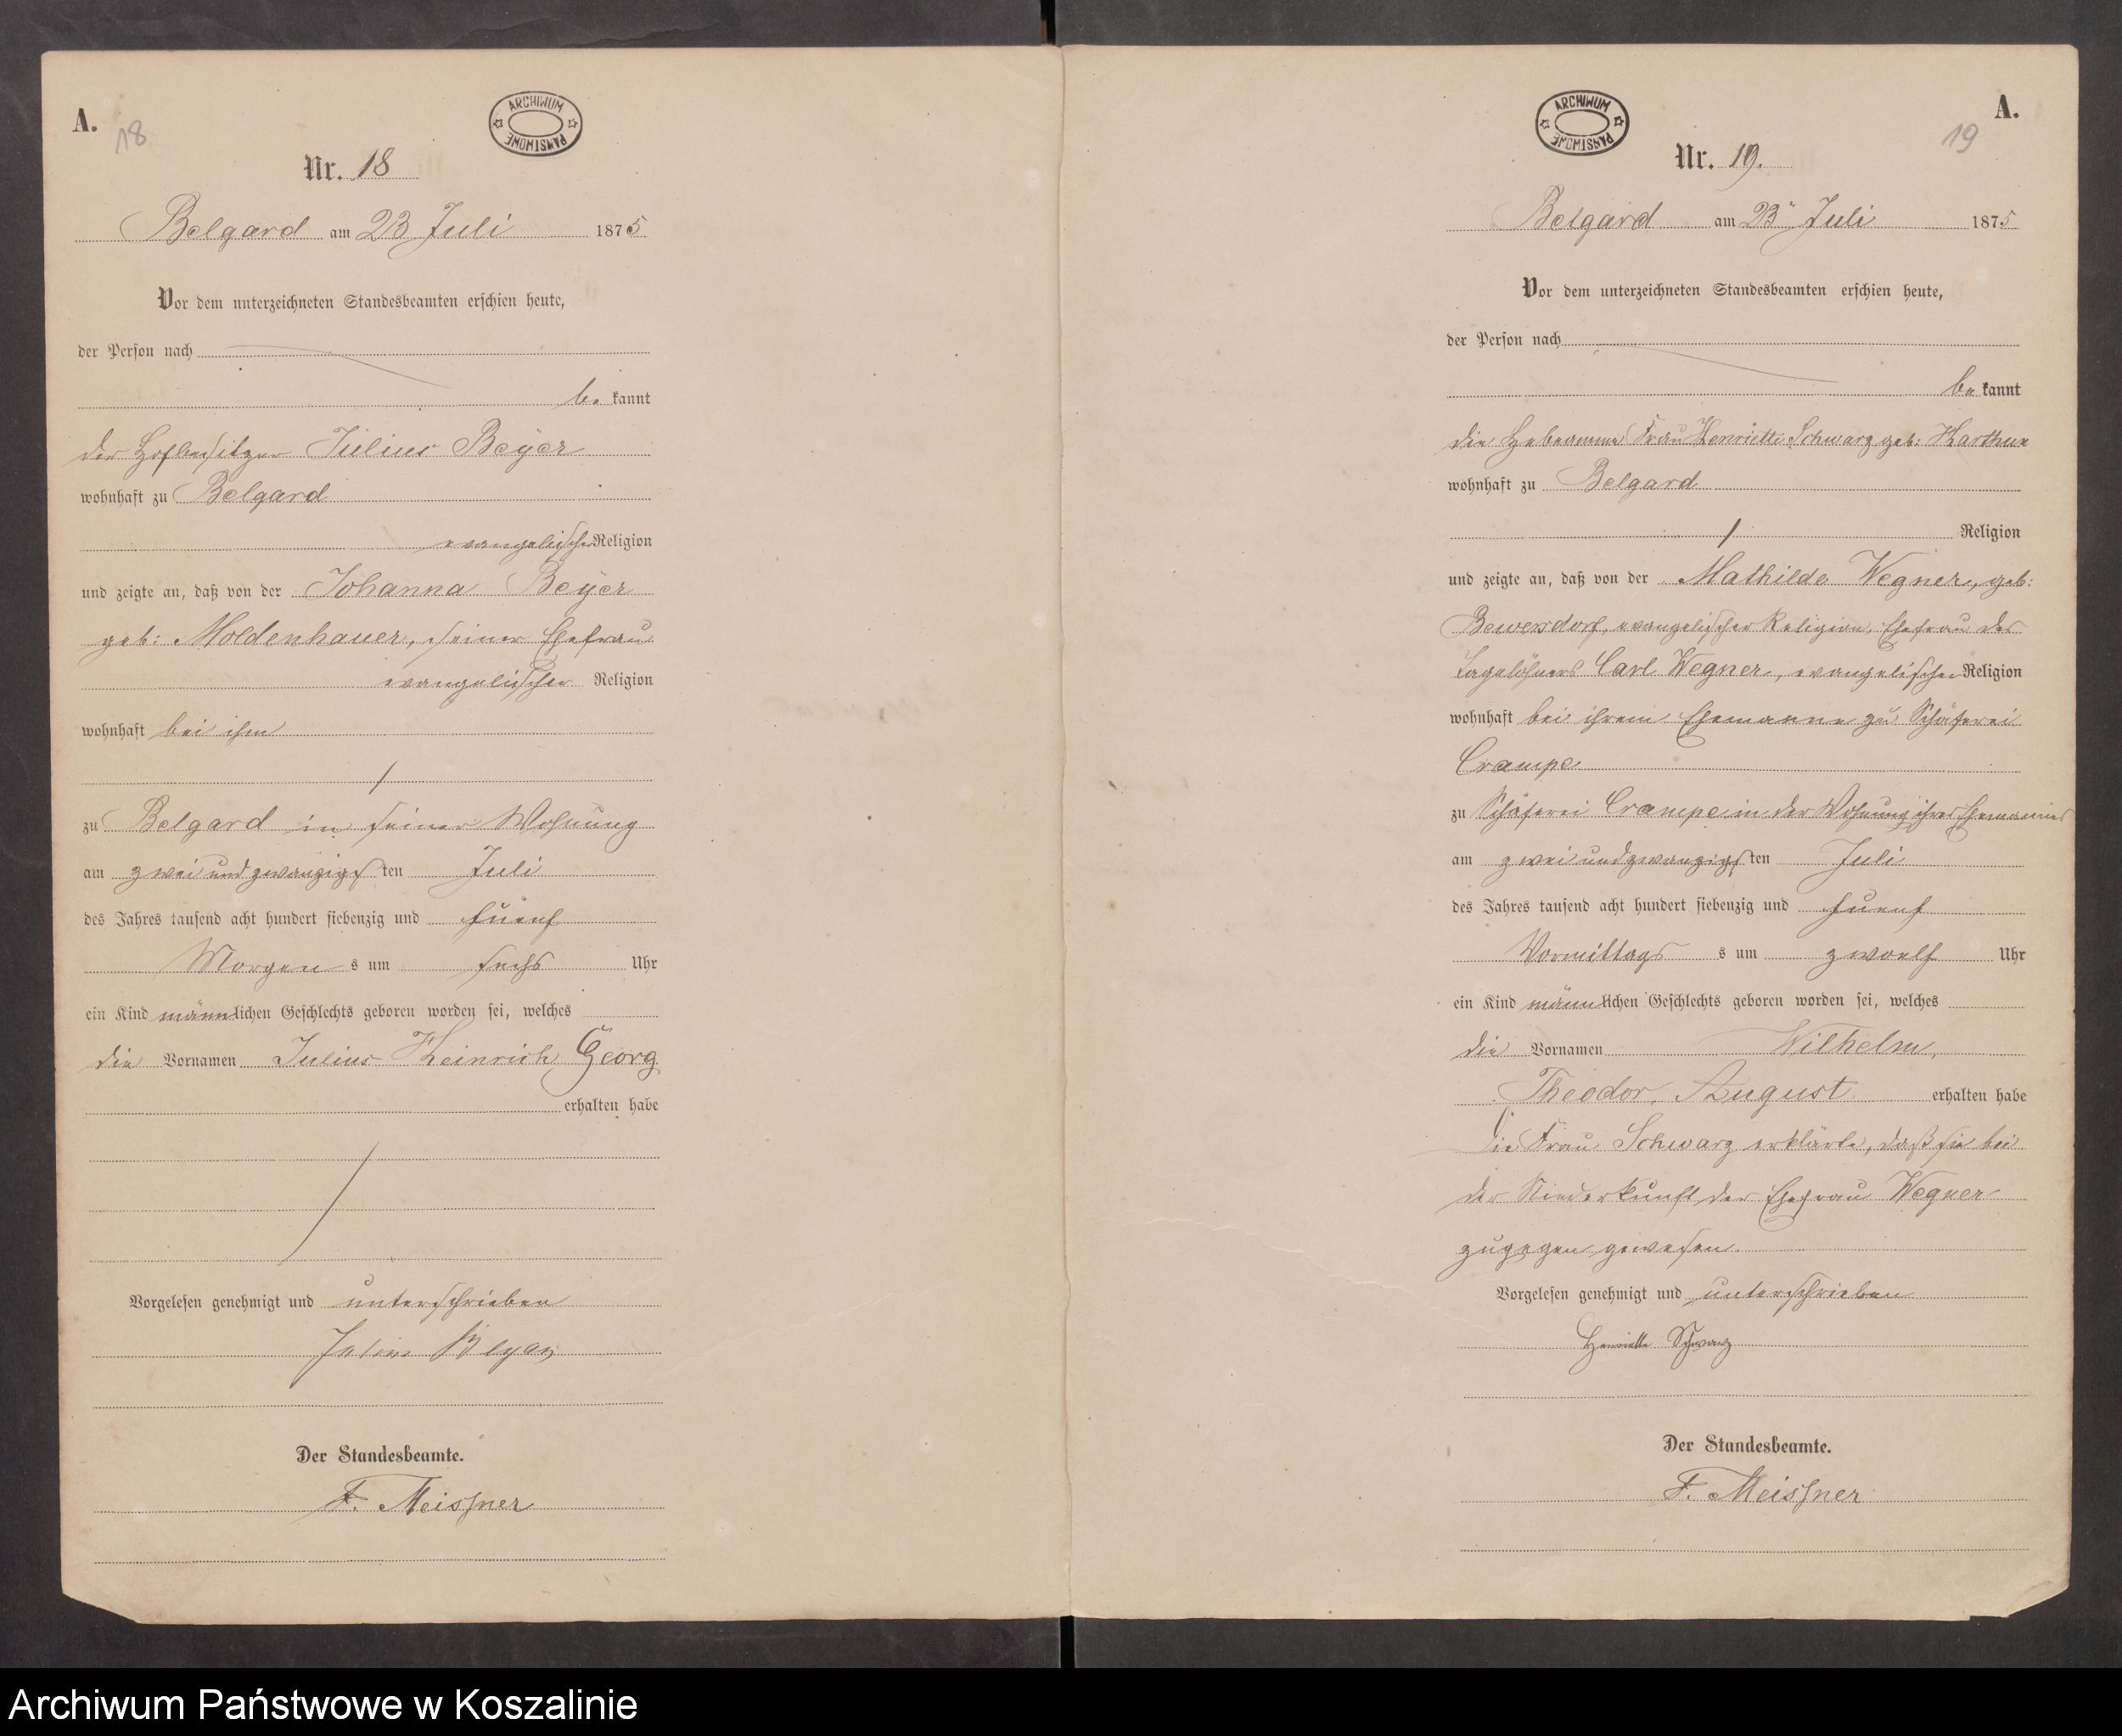 A.
18
ARCHIWUM PAŃSTWOWE
Nr. 18
Belgard am 23 Juli 1875
Vor dem unterzeichneten Standesbeamten erschien heute,
der Person nach
be kannt
der Hofbesitzer Julius Beyer
wohnhaft zu Belgard
evangelischer Religion
und zeigte an, daß von der Johanna Beyer
geb: Moldenhauer, seiner Ehefrau
evangelischer Religion
wohnhaft bei ihm
zu Belgard in seiner Wohnung
am zwei und zwanzigs ten Juli
des Jahres tausend acht hundert siebenzig und fuenf
Morgen s um sechs Uhr
ein Kind männlichen Geschlechts geboren worden sei, welches
die Vornamen Julius Heinrich Georg
erhalten habe
Vorgelesen genehmigt und unterschrieben
Julius Beyer
Der Standesbeamte.
F. Meissner
A.
19
ARCHIWUM PAŃSTWOWE
Nr. 19.
Belgard am 23" Juli 1875
Vor dem unterzeichneten Standesbeamten erschien heute,
der Person nach
be kannt
die Hebeamme Frau Henriette Schwarz geb:
wohnhaft zu Belgard
Religion
und zeigte an, daß von der Mathilde Wegner, geb:
Bewersdorf, evangelischer Religion, Ehefrau des
Tagelöhners Carl Wegner, evangelischer Religion
wohnhaft bei ihrem Ehemanne zu Schäferei
Crampe
zu Schäferei Crampe in der Wohnung ihres Ehemannes
am zwei und zwanzigs ten Juli
des Jahres tausend acht hundert siebenzig und fuenf
Vormittags s um zwoelf Uhr
ein Kind männlichen Geschlechts geboren worden sei, welches
die Vornamen Wilhelm,
Theodor, August erhalten habe
Die Frau Schwarz erklärte, daß sie bei
der Niederkunft der Ehefrau Wegner
zugegen gewesen.
Vorgelesen genehmigt und unterschrieben
Henriette Schwarz
Der Standesbeamte.
F. Meissner
Archiwum Państwowe w Koszalinie